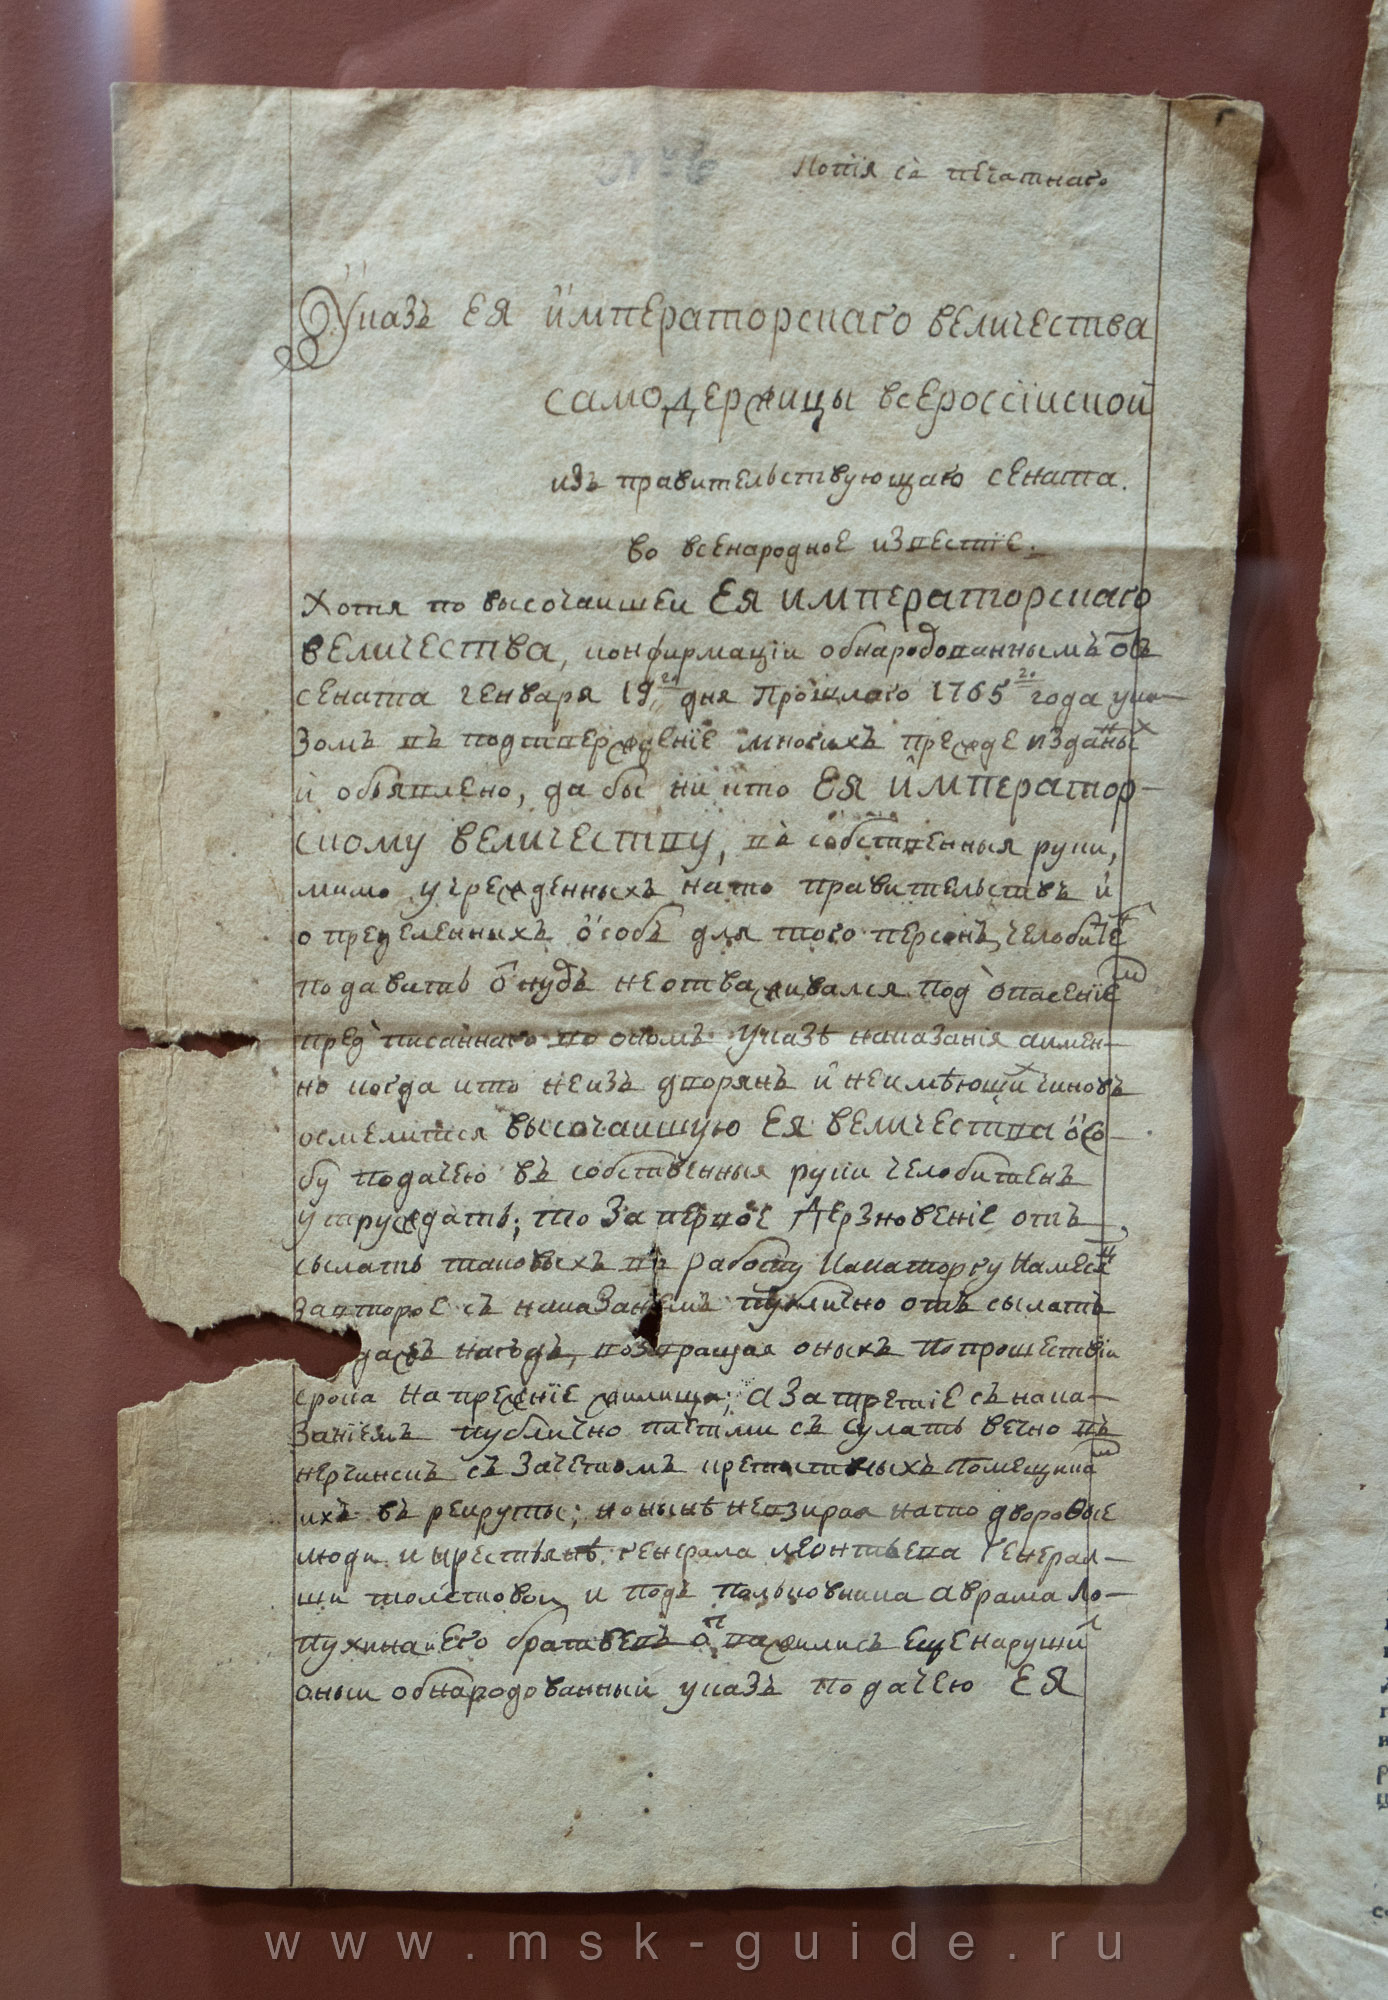 Копія съ печатнаго
Указъ ЕЯ императорскаго величества
самодержицы всероссійской
изъ правительствующаго сената.
во всенародное извѣстіе.
Хотя по высочаишеи ЕЯ императорскаго
величества, конфирмаціи обнародованнымъ отъ
сената генваря 19го дня прошлаго 1765го года ука-
зомъ въ подтверждение многихъ прежде изданных
и объявлено, дабы никто ЕЯ император-
скому величеству, въ собственныя руки,
мимо учрежденныхъ на то правительствъ и
определенныхъ особъ для того персонъ, челобитен
подавать отнюдъ не отваживался под опасениемъ
предписаннаго во ономъ указѣ наказанія а имен-
но когда кто не изъ дворянъ и не имѣющих чиновъ
осмелится высочаишую ЕЯ величества осо-
бу подачею въ собственныя руки челобитенъ
утруждать; то за первое дерзновение отъ
сылать таковыхъ въ работу на каторгу на месец
за второе съ наказаниемъ публично отъ сылать
туда жъ на годъ, возвращая оныхъ по прошествіи
срока на прежние жилища; а за третие съ нака-
заниемъ публично плетьми съ сулать вечно въ
нерчинскъ съ зачетомъ крепостныхъ помещикам
ихъ въ рекруты; но нынѣ невзирая на то дворовые
люди и крестьянѣ генерала леонтьева генерал-
ши толстовои и подъ полковника аврама ло-
пухина и его братьевъ отважились еще нарушил
оныи обнародованный указъ подачею ЕЯ
www.msk-guide.ru